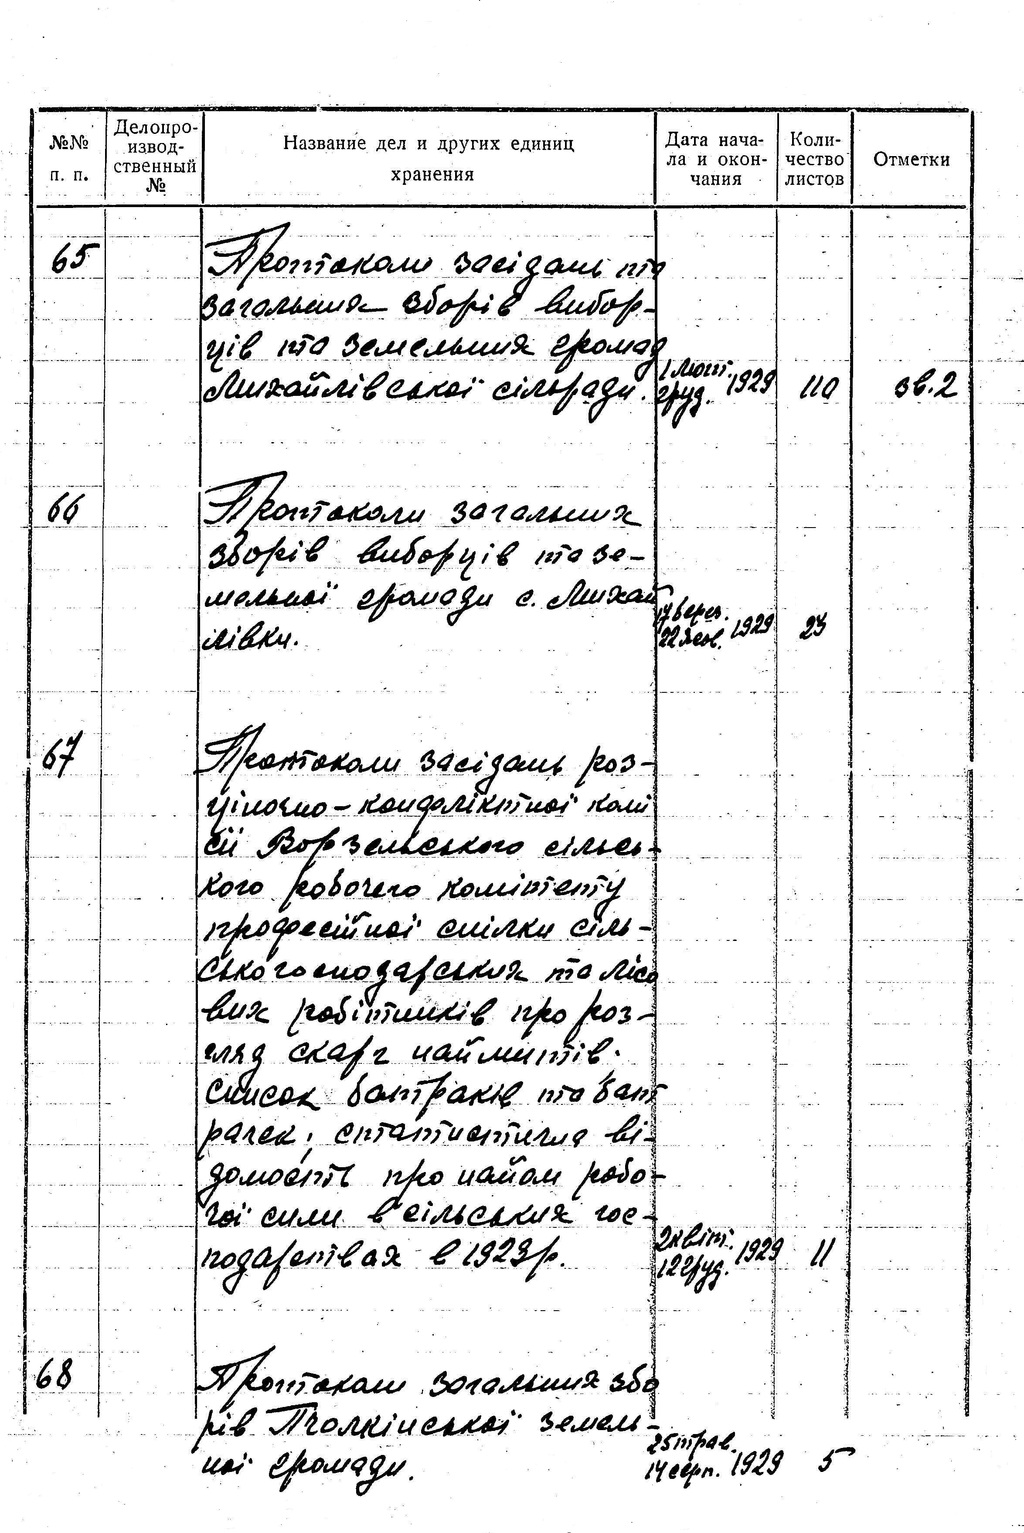 №№ п. п.
Делопро-
извод-
ственный
№
Название дел и других единиц
хранения
Дата нача-
ла и окон-
чания
Коли-
чество
листов
Отметки
65
Протоколи засідань та
загальних зборів вибор-
ців та земельних громад
Михайлівської сільради.
1 лют.
груд. 1929
110
зв.2
66
Протоколи загальних
зборів виборців та зе-
мельної громади с. Михай
лівки.
17 берез.
22 жов. 1929
23
67
Протоколи засідань роз-
ціночно-конфліктної комі
сії Ворзельського сільсь-
кого робочого комітету
професійної спілки сіль-
ськогосподарських та лісо
вих робітників про роз-
гляд скарг наймитів.
список батраків та бат
рачек, статистичня ві-
домость про найом робо-
чої сили в сільських гос-
подарствах в 1929р.
2 квіт.
12 груд. 1929
11
68
Протоколи загальних збо
рів Пчолкінської земель-
ної громади.
25 трав.
14 серп. 1929
5